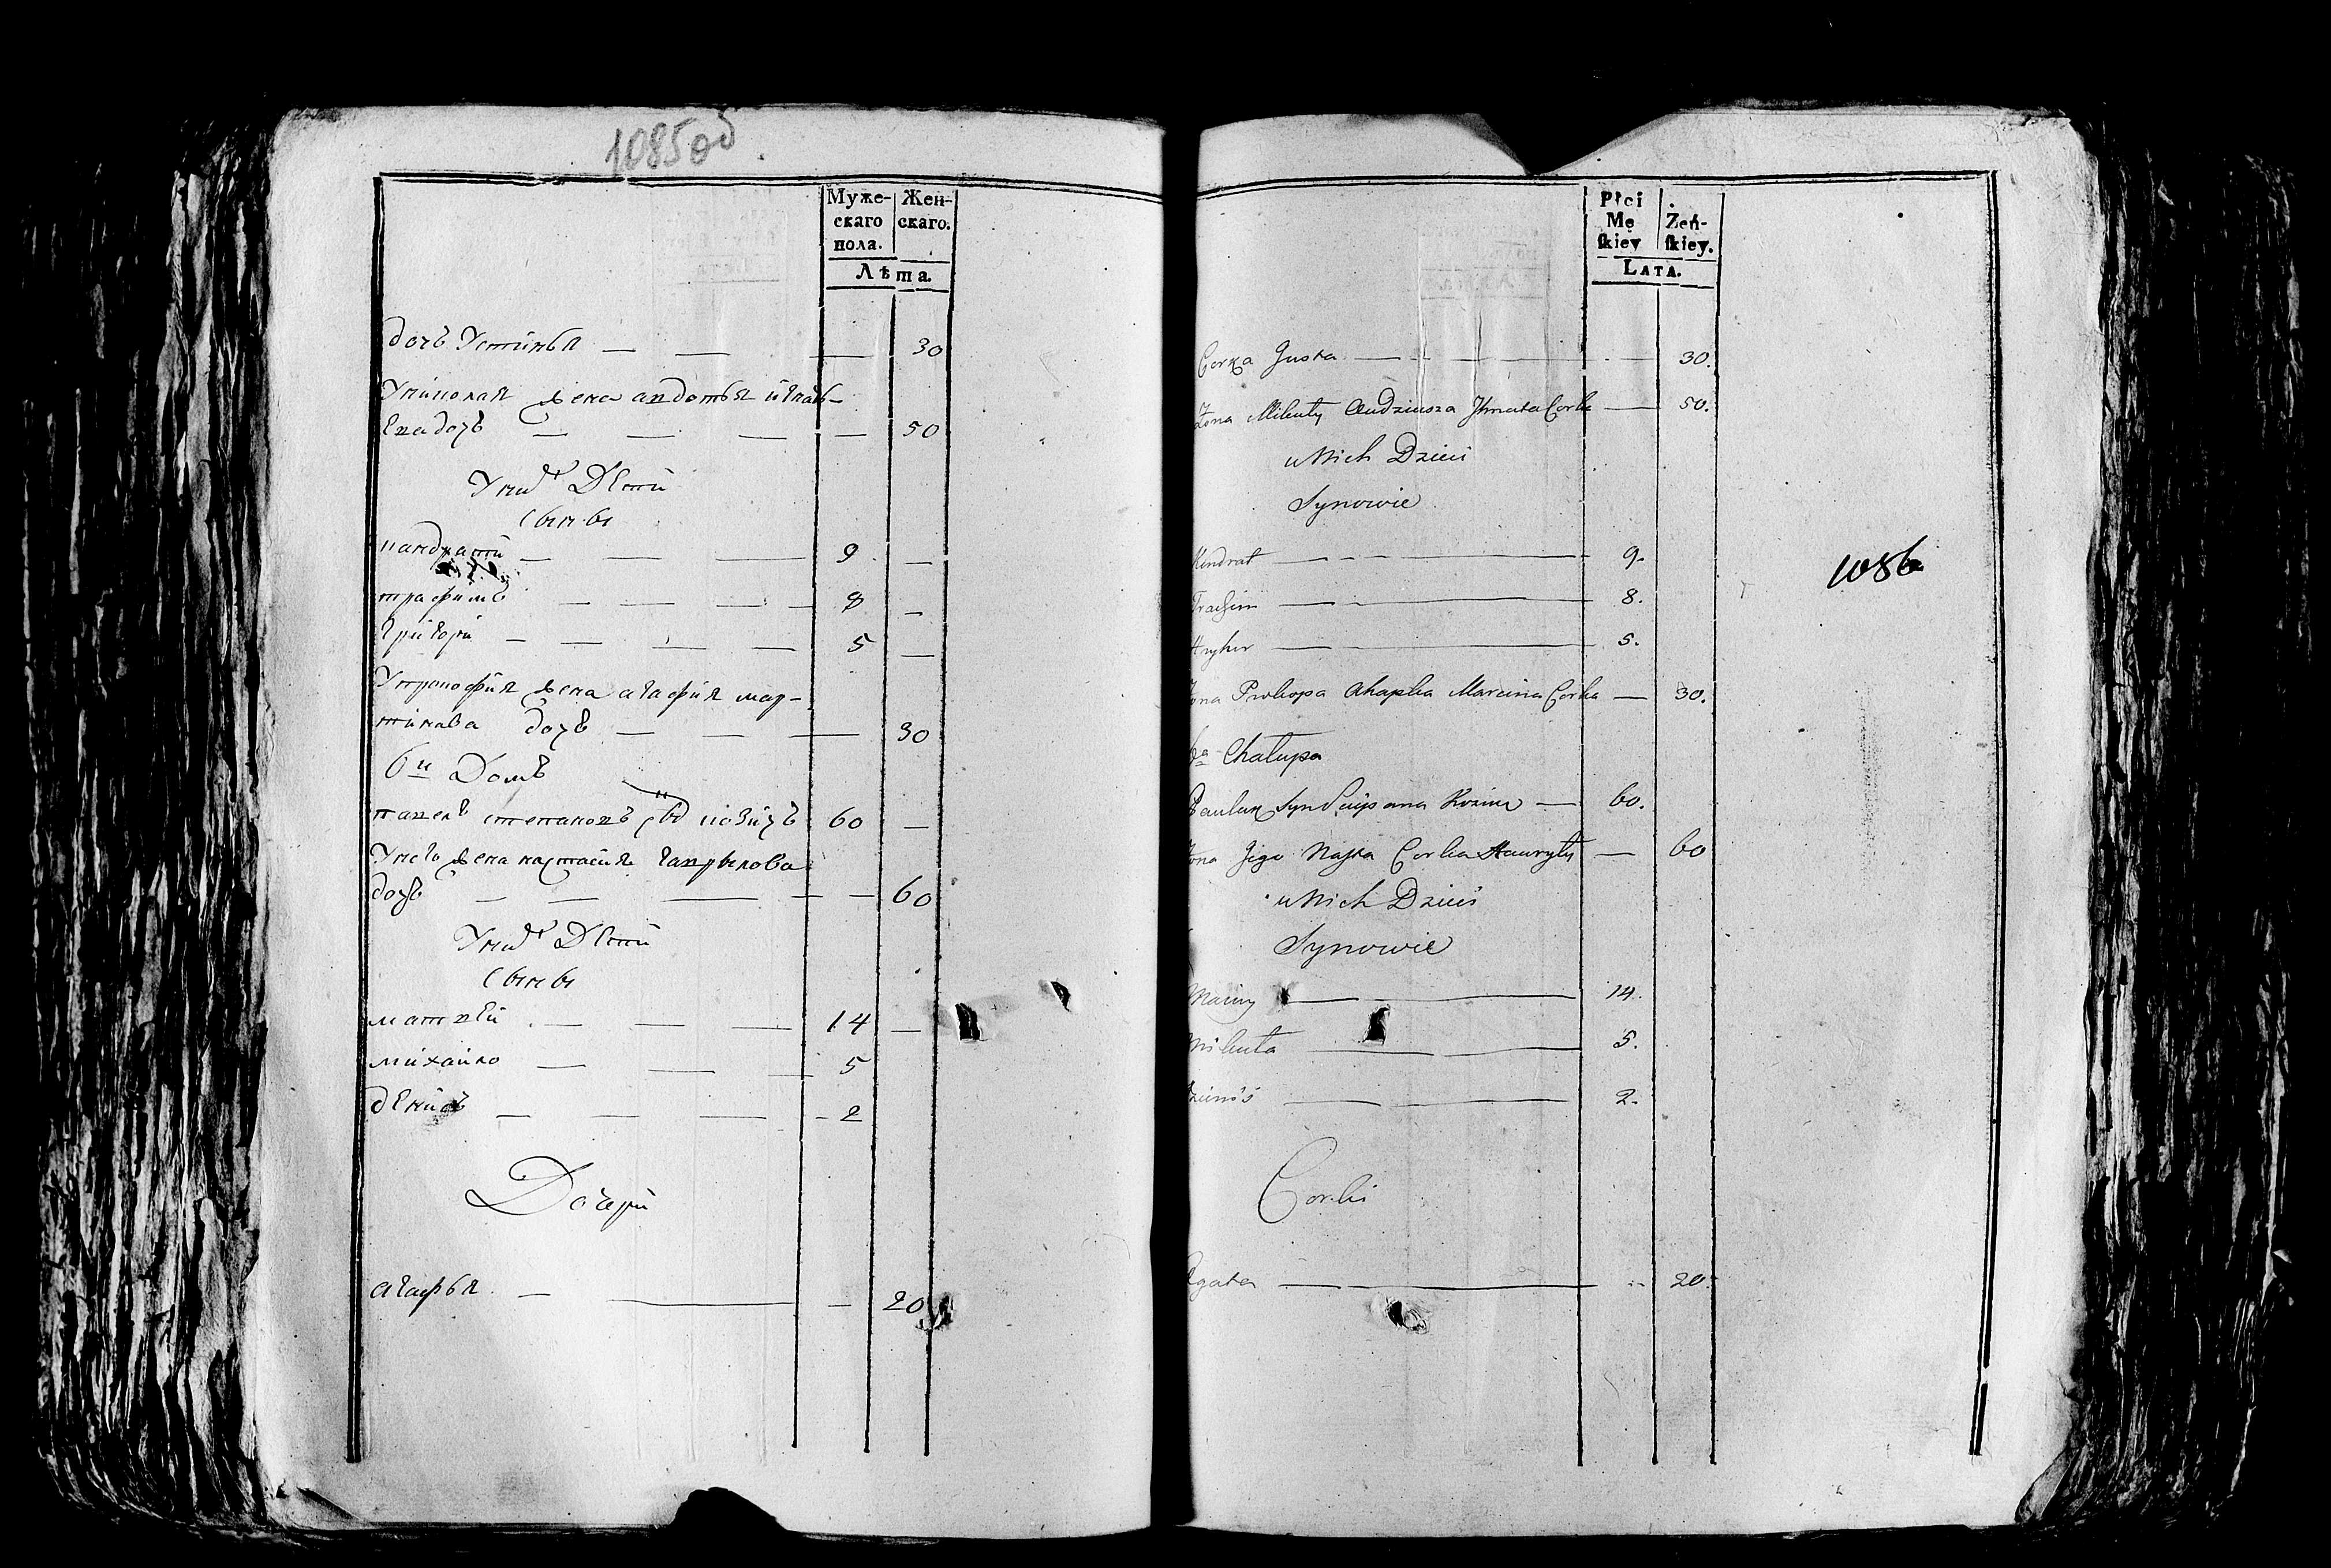 1085об
Муже-
скаго
пола.
Жен-
скаго.
Лѣта.
дочъ Устинья — — — 30
Униколая жена авдотья игнать-
ева дочъ — — — — 50
Унихъ Дети
Сыны
кандрати — — — 9 —
трафимъ — — — — 8 —
григори — — — — 5 —
Упрокофия жена агафия мар-
тинава дочъ — — — 30
6й Домъ
павелъ степановъ сынъ 60 —
Унего жена настасия гаврилова
дочъ — — — — — 60
Унихъ Дети
Сыны
матвей — — — 14 —
михайло — — — 5
денисъ — — — 2
Дочери
агафья — — — 20
Płci
Mę
ſkiey
Żeń-
ſkiey.
LATA.
Corka Justa — 30.
Żona Mikuty Audziusza Ihnata Corka — 50.
u Nich Dzieci
Synowie
Kindrat — 9.
Trachim — 8.
Hryhor — 5.
Żona Prokopa Ahapka Marcina Corka — 30.
6a Chałupa
Pauluk Syn Sciepana — 60.
Żona Jego Nasta Corka Hauryły — 60
u Nich Dzieci
Synowie
Maciey — 14.
Mikuta — 5.
Dzienis — 2.
Corki
Agata — 20.
1086